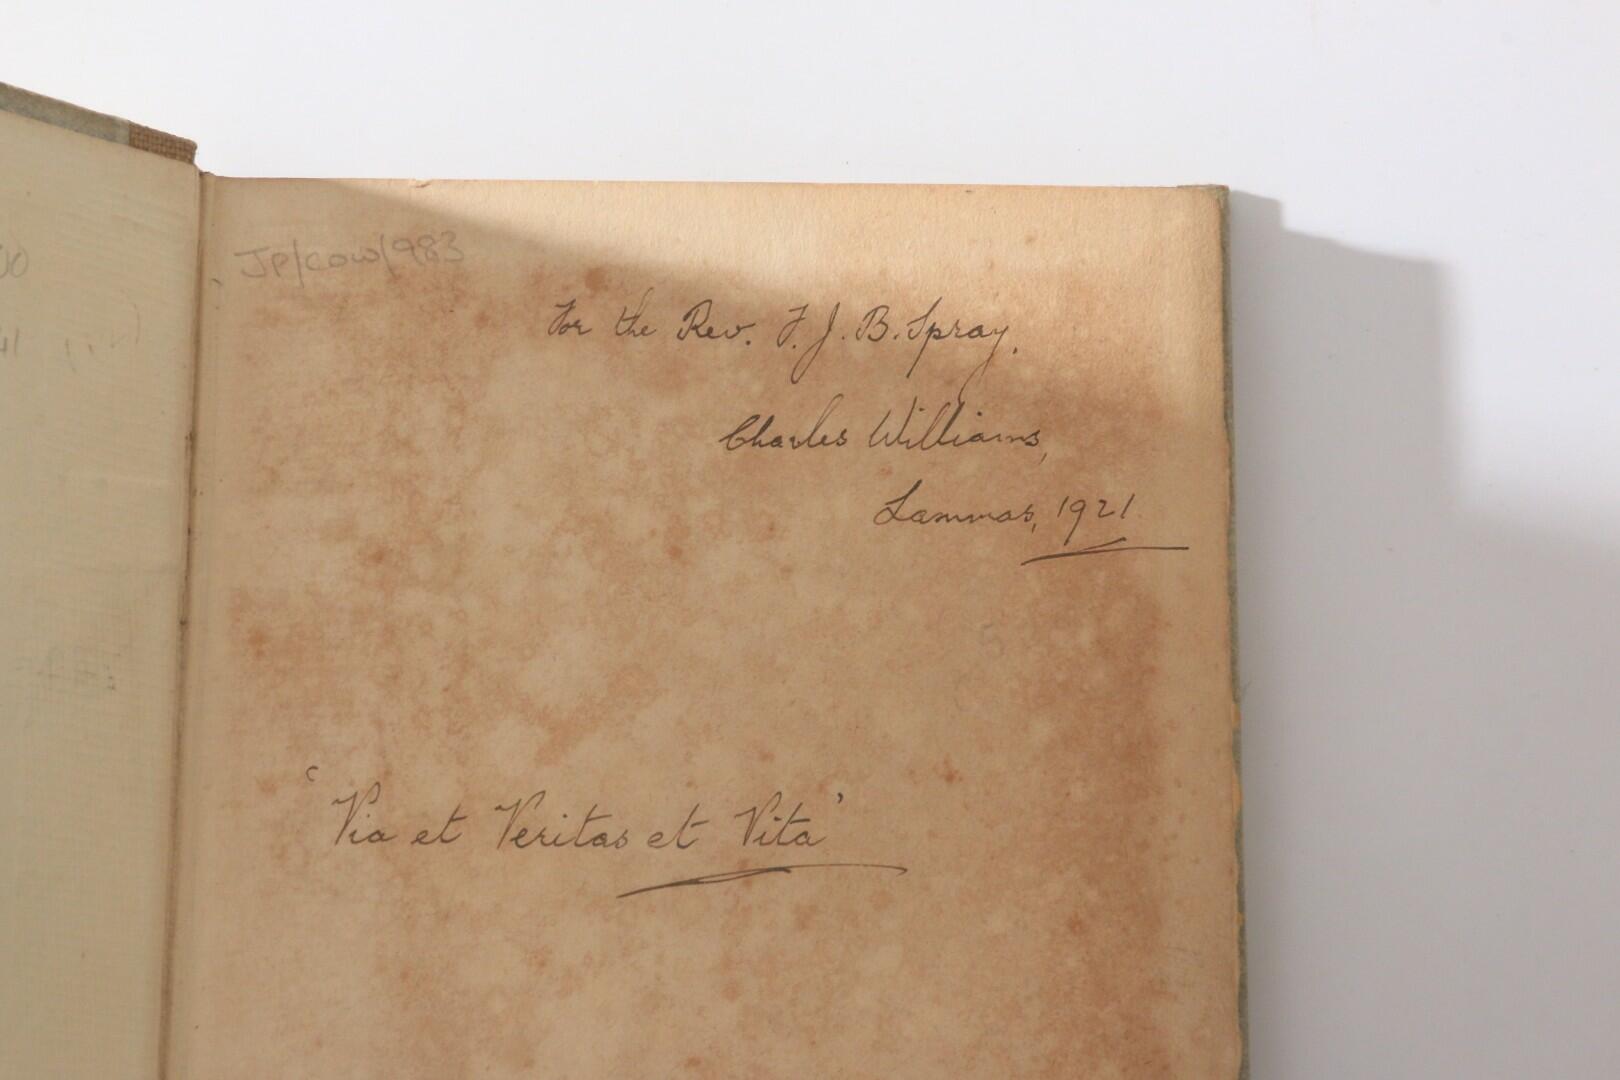 JP/COW/983
For the Rev. F. J. B. Spray.
Charles Williams,
Lammas, 1921
'Via et Veritas et Vita'